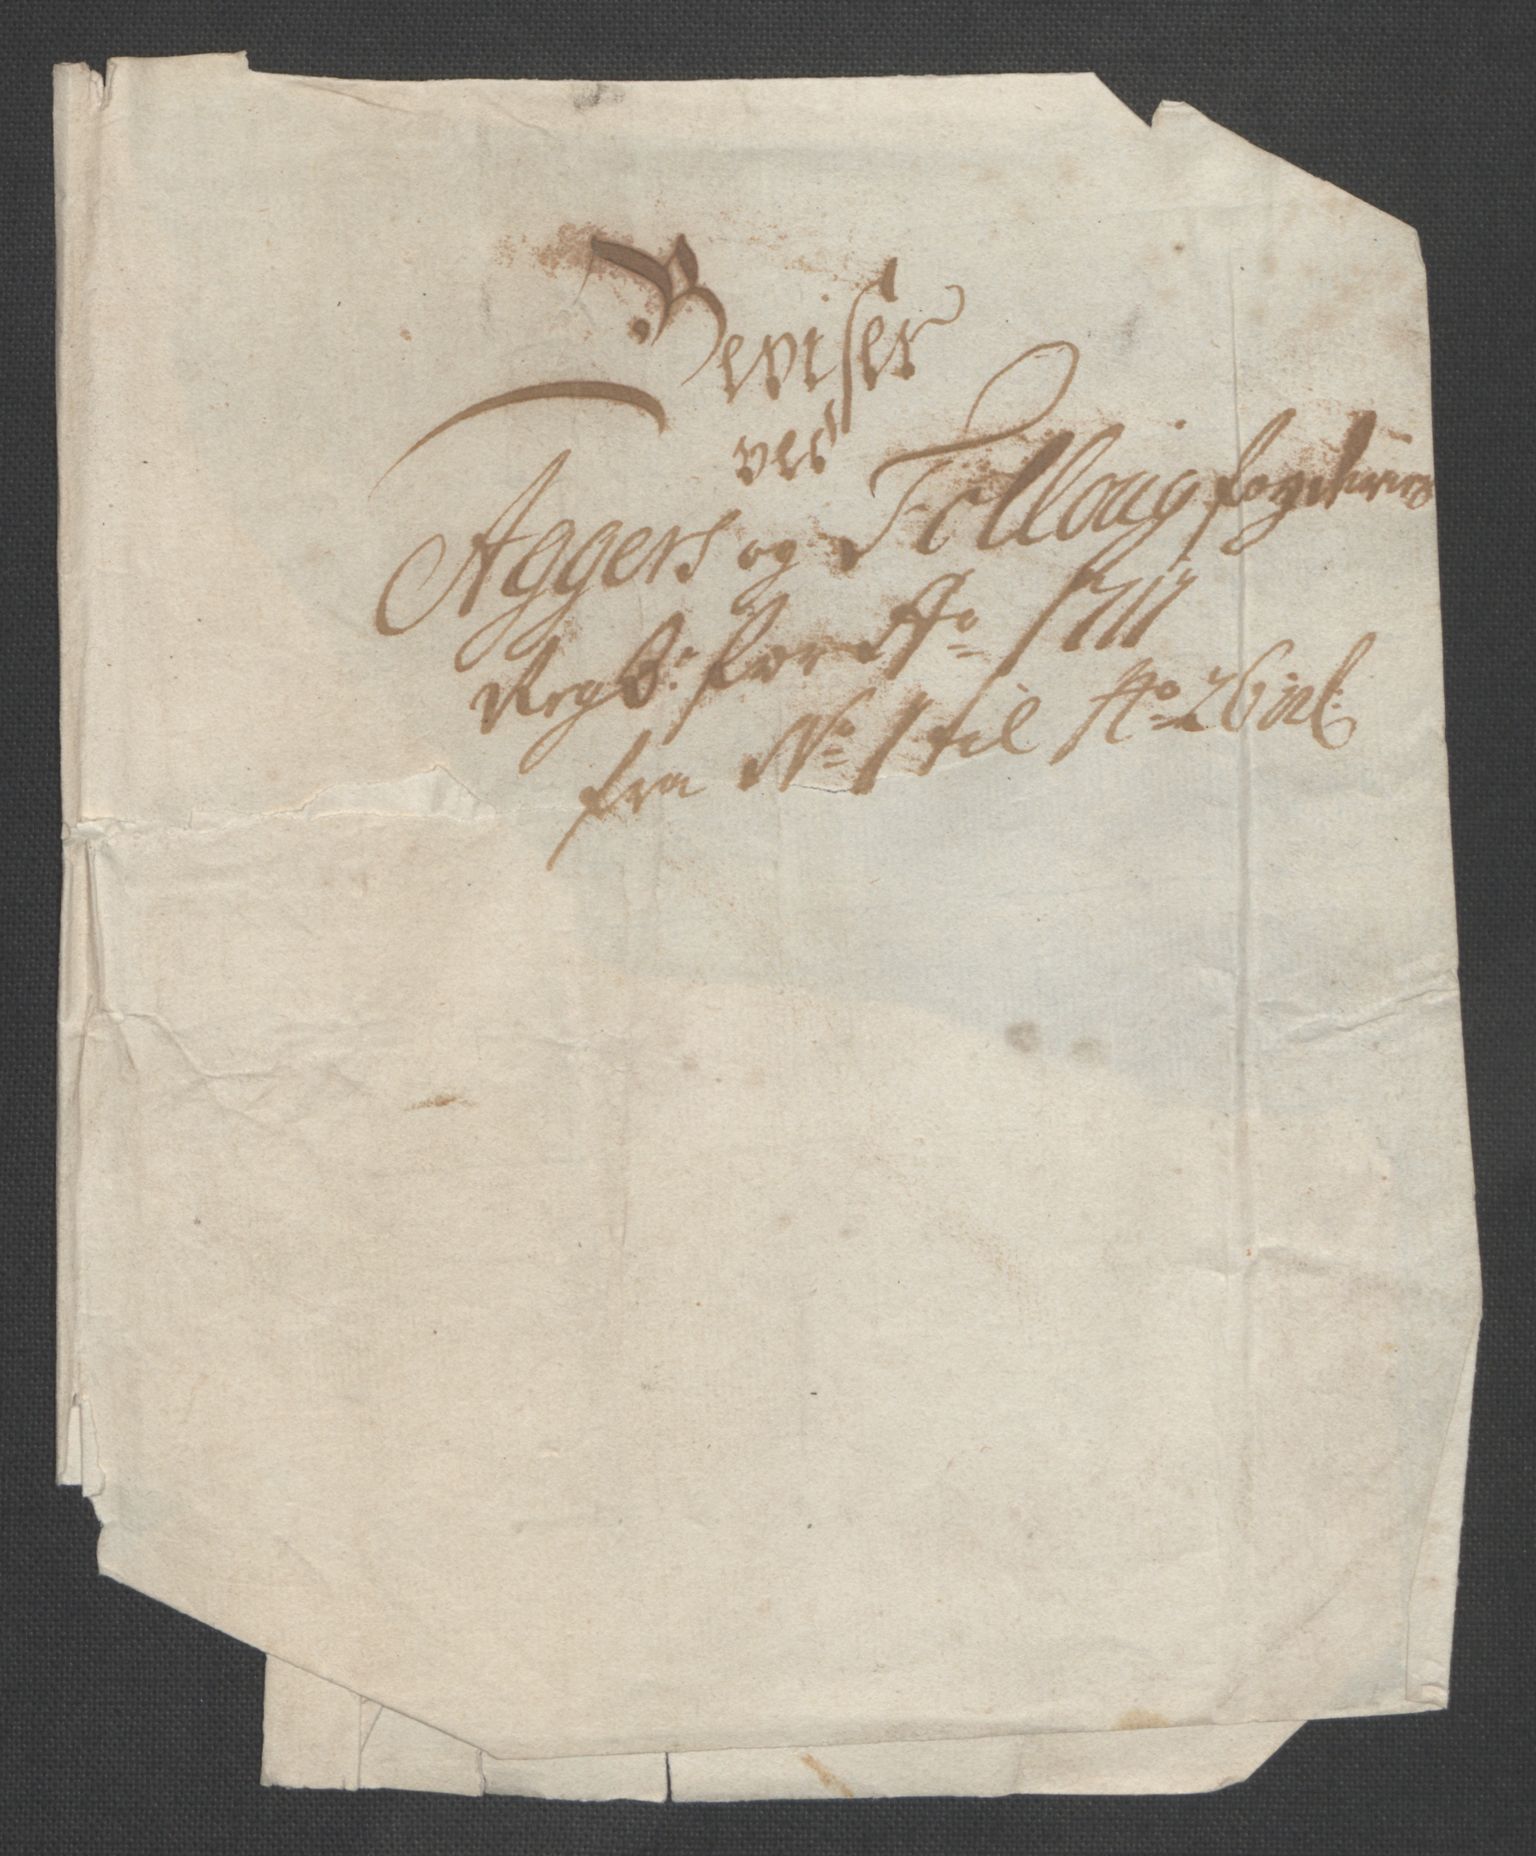 Beviser
ved
Aggers og Folloug fogderiers
Regb: for Ao 1711
fra No 1 til No 26 incl: